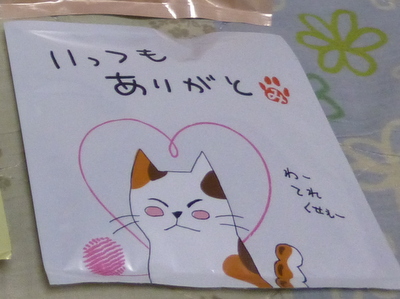 いっつも
ありがと
わー
てれ
くせぇー